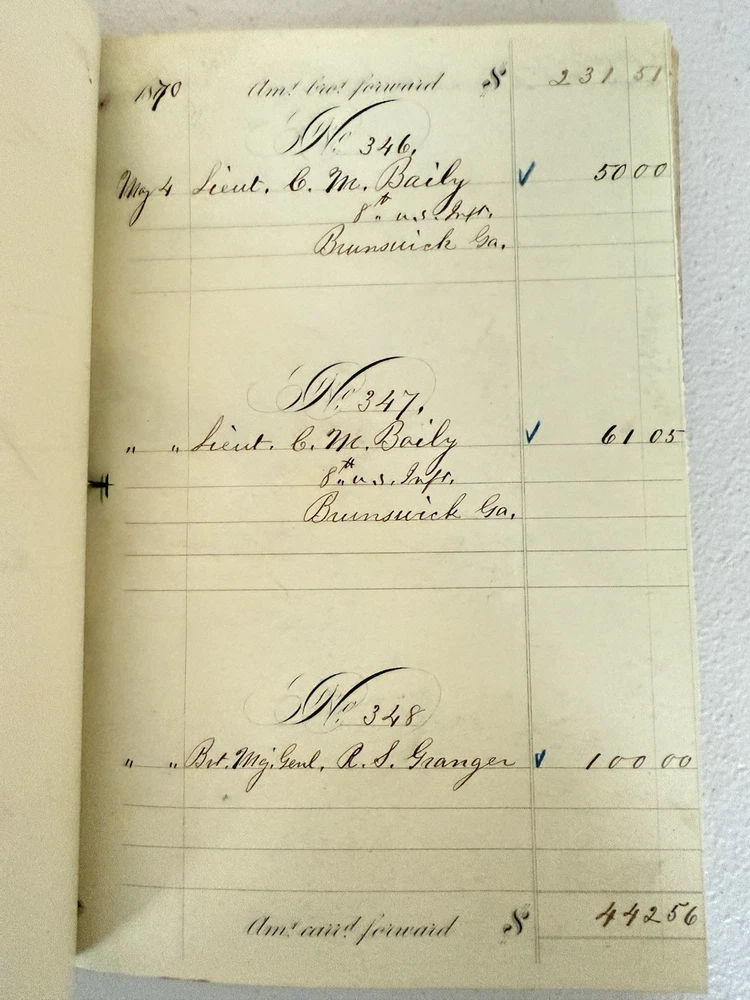 1870 Amt. brot. forward $ 231 51
No. 346.
May 4 Lieut. C. M. Baily ✓ 50 00
8th u.s. Inft.
Brunswick Ga.
No. 347.
" " Lieut. C. M. Baily ✓ 61 05
8th u.s. Inft.
Brunswick Ga.
No. 348
" " Bvt. Maj. Genl. R. S. Granger ✓ 100 00
Amt. carrd. forward $ 442 56